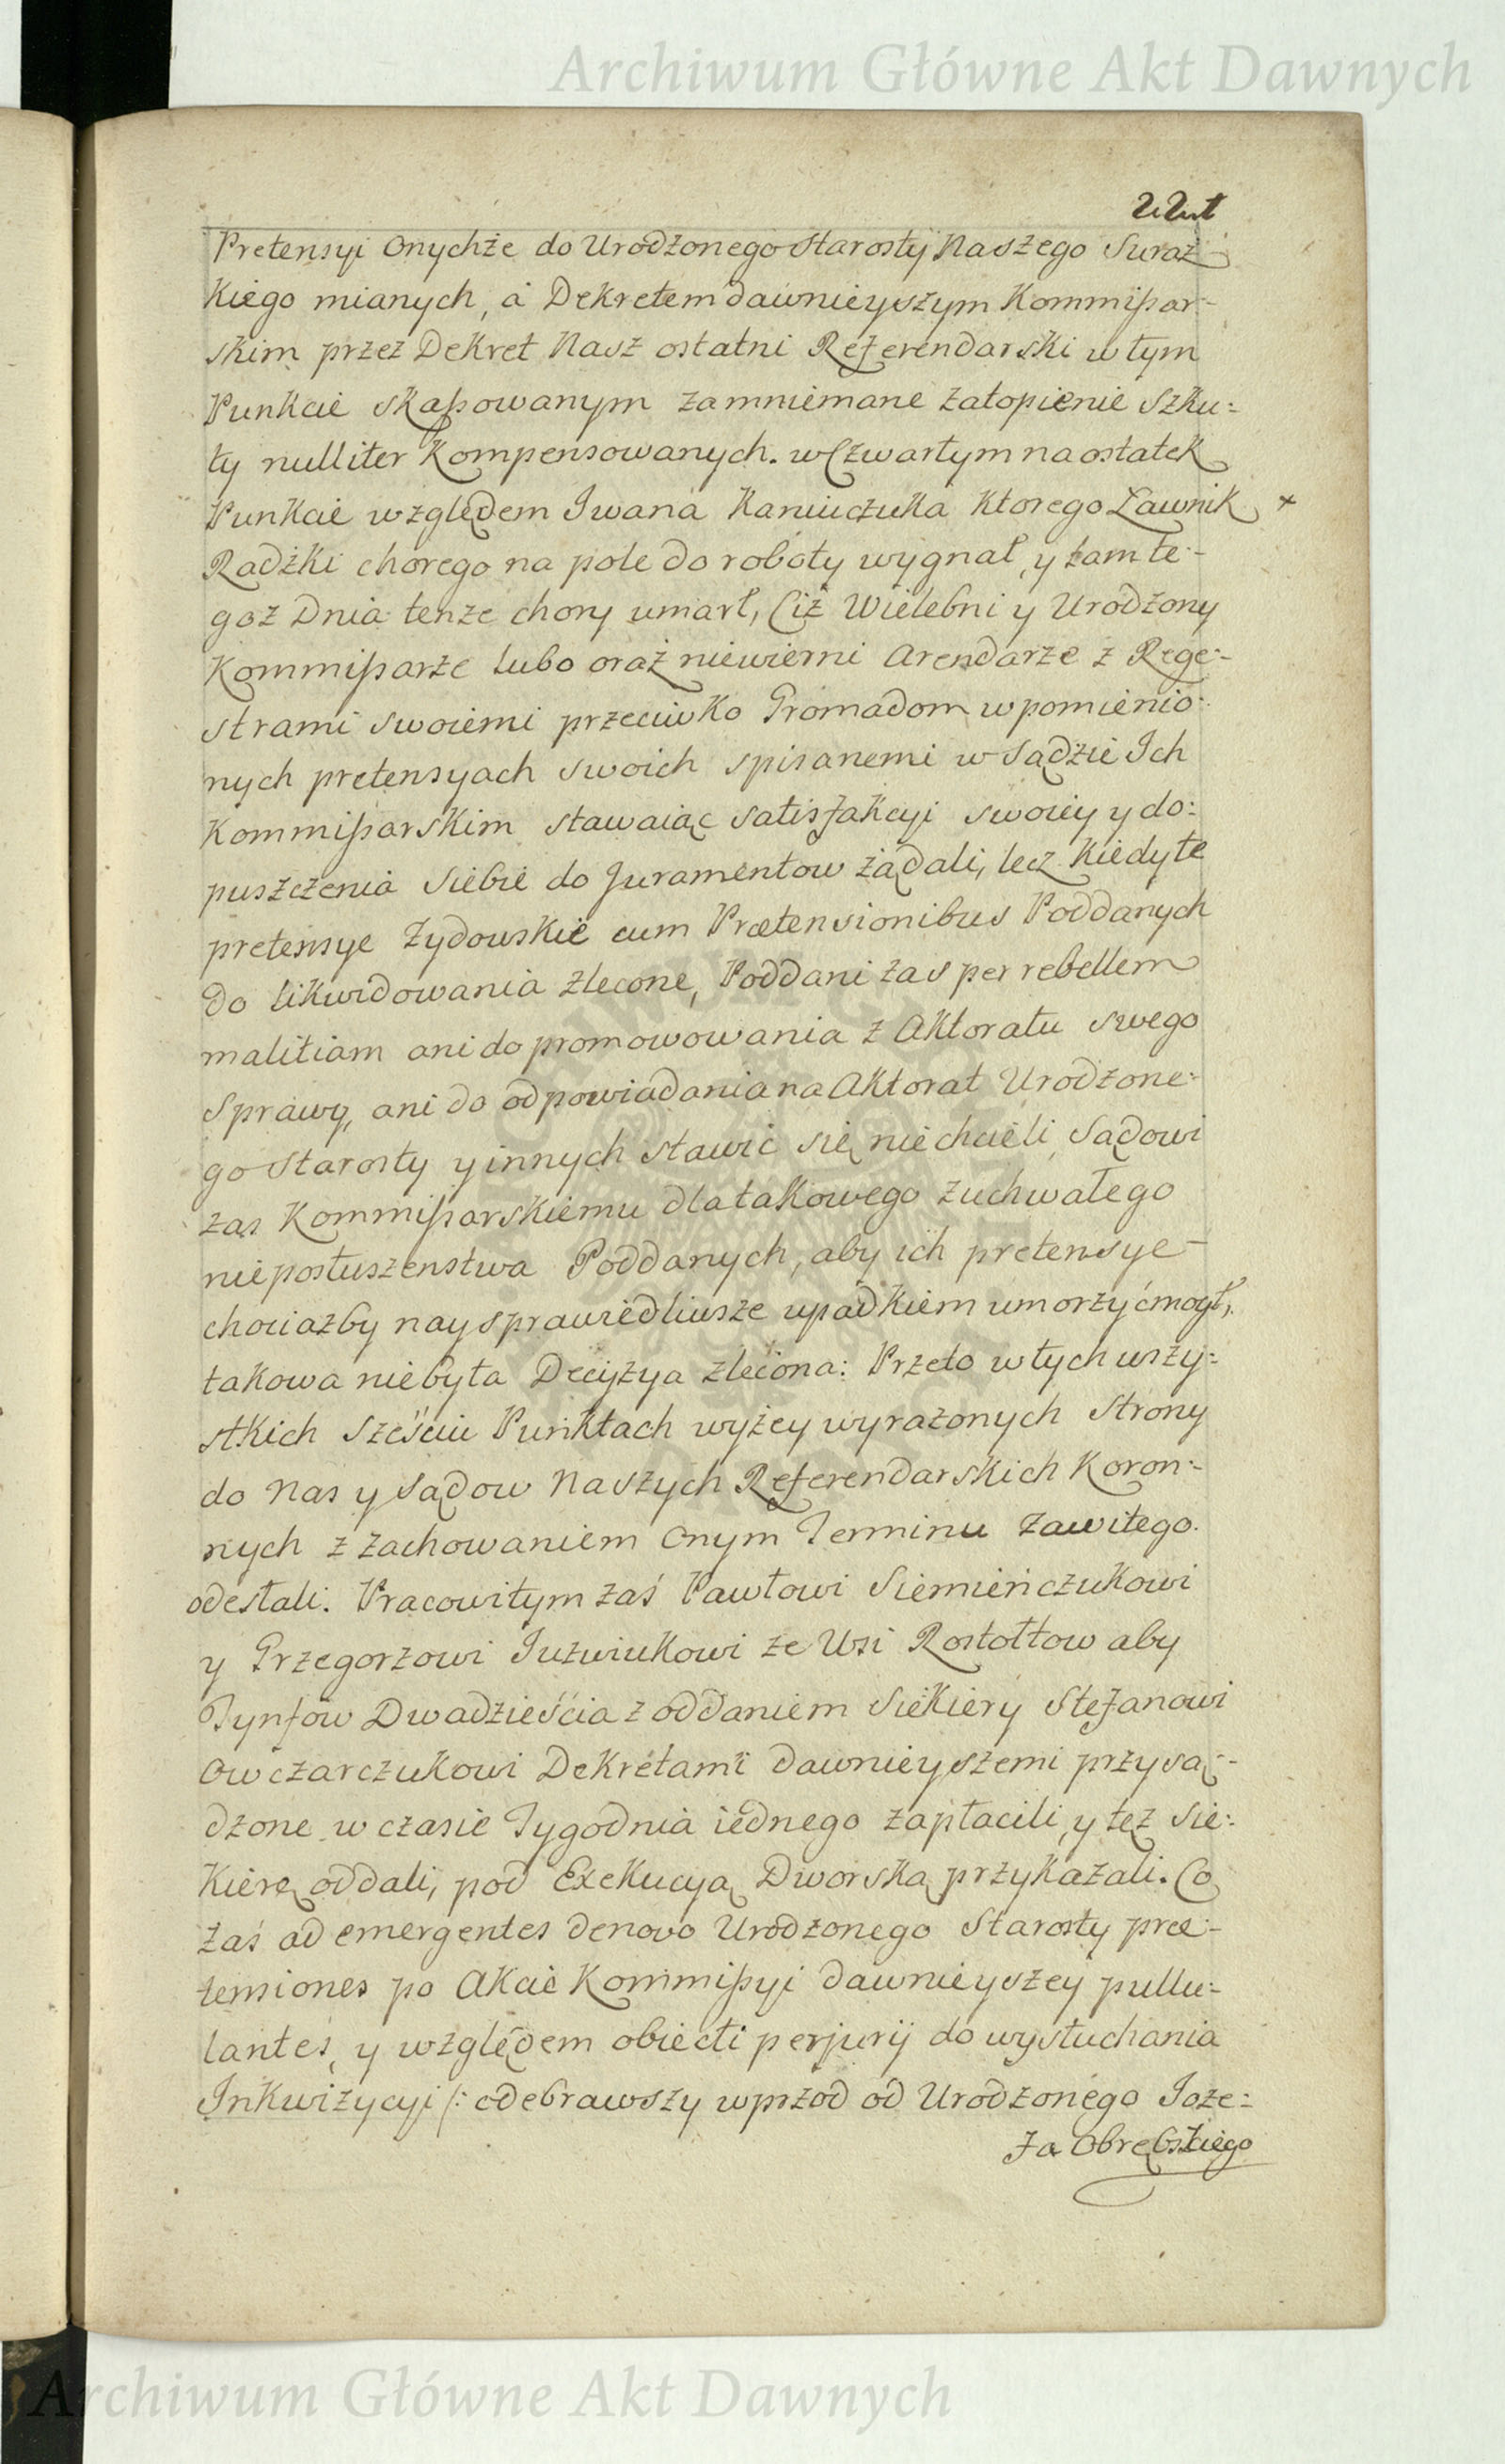 Archiwum Główne Akt Dawnych
Pretensyi Onychże do Urodzonego Starosty Naszego Suraz
kiego mianych, a Dekretem dawnieyszym Kommißar-
skim przez Dekret Nasz ostatni Referendarski w tym
Punkcie skaßowanym za mniemane zatopienie Szku=
ty nulliter kompensowanych. w Czwartym na ostatek
Punkcie względem Iwana Kaniuczuka ktorego Ławnik +
Radzki chorego na pole do roboty wygnał, y tam te-
goz Dnia tenże chory umarł, Ciż Wielebni y Urodzony
Kommißarze lubo oraz niewierni Arendarze z Rege-
strami swoiemi przeciwko Gromadom w pomienio-
nych pretensyach swoich spisanemi w Sądzie Ich
Kommißarskim stawaiąc satisfakcyi swoiey y do:
puszczenia siebie do Juramentow żądali, lecz kiedy te
pretensye Żydowskie cum Prætensionibus Poddanych
do likwidowania zlecone, Poddani zas per rebellem
malitiam ani do promowowania z Aktoratu swego
Sprawy, ani do odpowiadania na Aktorat Urodzone-
go Starosty y innych stawić się niechcieli, Sądowi
zas Kommißarskiemu dla takowego zuchwałego
nieposłuszenstwa Poddanych, aby ich pretensye-
chociażby naysprawiedliwsze upadkiem umorzyć mogł,
takowa niebyła Decyzya zlecona: Przeto w tych wszy=
stkich Sześciu Punktach wyżey wyrażonych Strony
do Nas y Sądow Naszych Referendarskich Koron-
nych z zachowaniem Onym Terminu Zawitego.
odesłali. Pracowitym zaś Pawłowi Siemieńczukowi
y Grzegorzowi Juzwiukowi ze Wsi Rostołtow aby
Tynfow Dwadzieścia z oddaniem Siekiery Stefanowi
Owczarczukowi Dekretami dawnieyszemi przysą-
dzone w czasie Tygodnia iednego zapłacili, y też Sie:
kierę oddali, pod Exekucyą Dworską przykazali. Co
zaś ad emergentes denovo Urodzonego Starosty præ-
tensiones po Akcie Kommißyi dawnieyszey pullu-
lantes, y względem obiecti perjurij do wysłuchania
Inkwizycyi /: odebrawszy wprzod od Urodzonego Joze=
fa Obrębskiego
Archiwum Główne Akt Dawnych